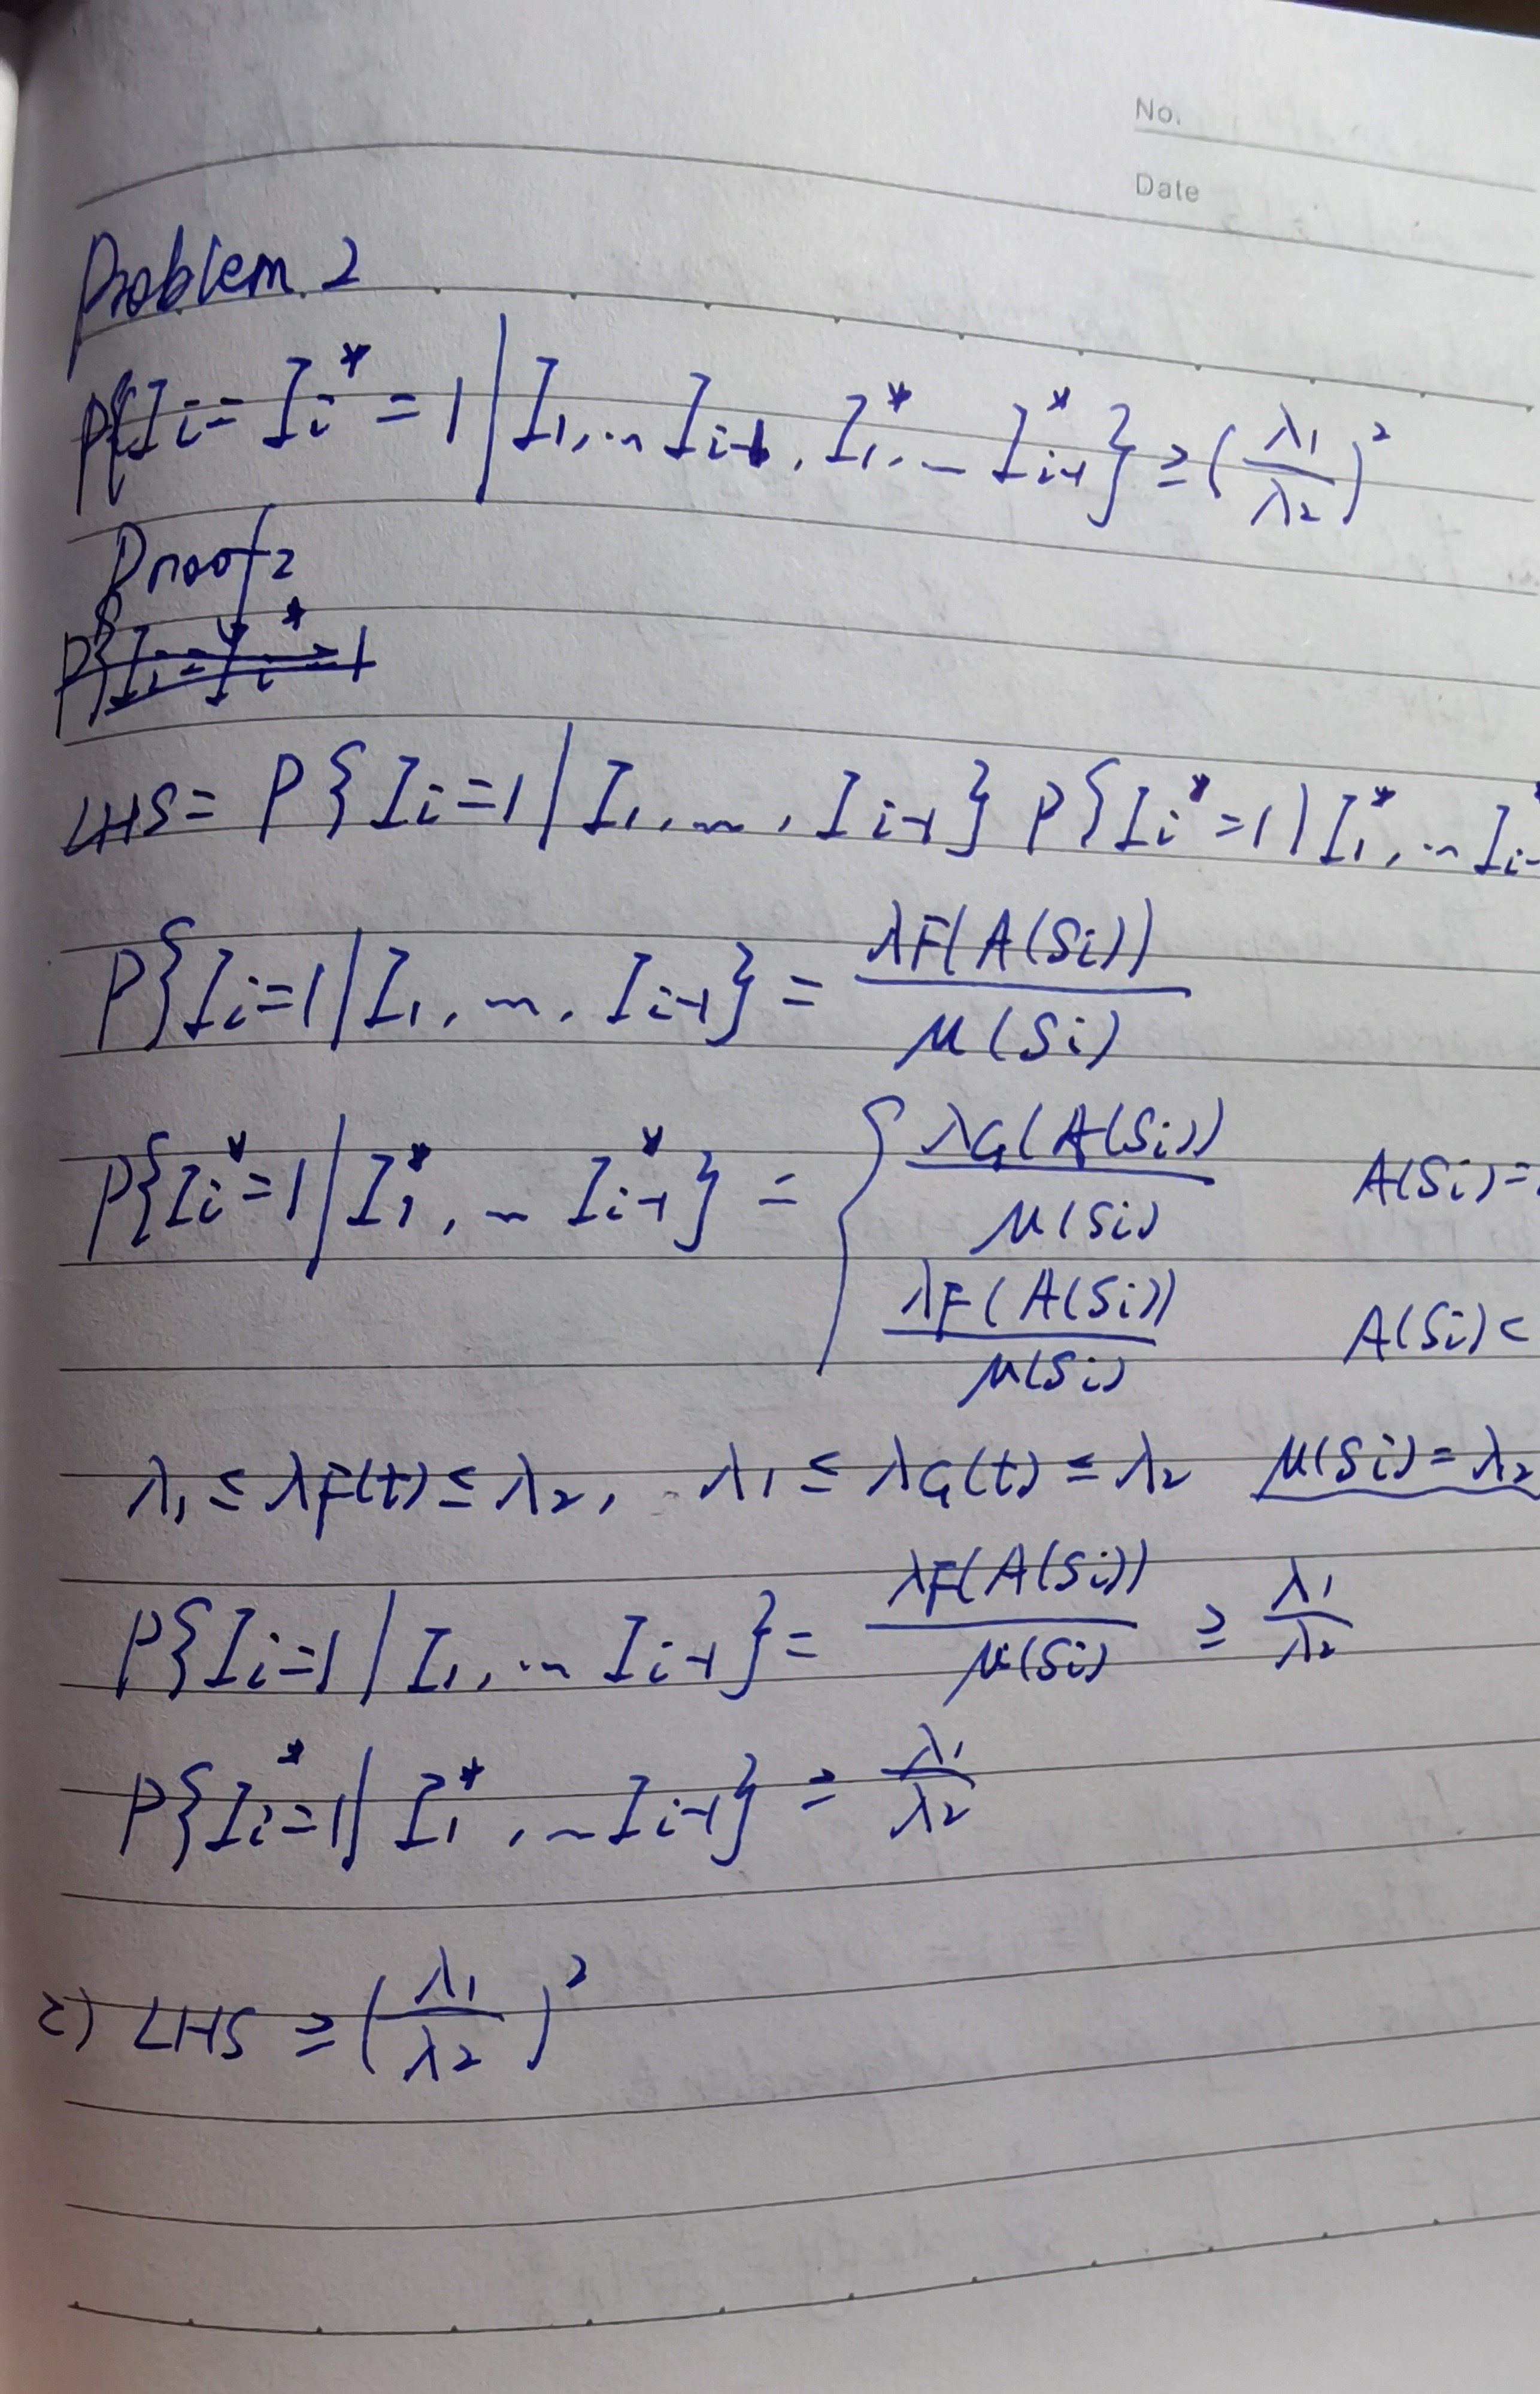 No.
Date
Problem 2
P{Ii = Ii* = 1 | I1, ... Ii-1, I1*, ... Ii-1*} ≥ (λ1/λ2)²
Proof:
LHS = P{Ii=1 | I1, ..., Ii-1} P{Ii*=1 | I1*, ... Ii-
P{Ii=1 | I1, ..., Ii-1} = λF(A(Si)) / μ(Si)
P{Ii*=1 | I1*, ... Ii-1*} = { λG(A(Si)) / μ(Si)   A(Si)=
λF(A(Si)) / μ(Si)   A(Si)<
λ1 ≤ λF(t) ≤ λ2, λ1 ≤ λG(t) ≤ λ2   μ(Si) = λ2
P{Ii=1 | I1, ... Ii-1} = λF(A(Si)) / μ(Si) ≥ λ1/λ2
P{Ii*=1 | I1*, ... Ii-1} ≥ λ1/λ2
LHS ≥ (λ1/λ2)²